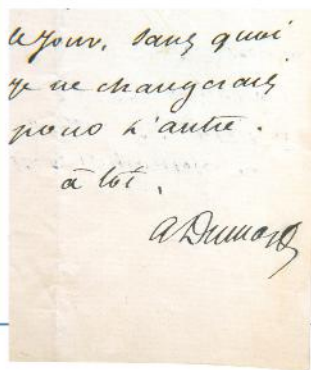 le jour, sans quoi
je ne changerais
pour l'autre.
à toi,
A Dumas